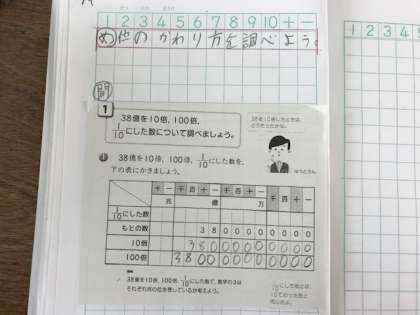 1 2 3 4 5 6 7 8 9 10 + −
め 位のかわり方を調べよう。
問
1
38億を10倍、100倍、
1/10にした数について調べましょう。
38億を10倍したときは、
どうなったかな。
ゆうとさん
1 38億を10倍、100倍、1/10にした数を、
下の表にかきましょう。
十 一 千 百 十 一 千 百 十 一 千 百 十 一
兆 億 万
1/10にした数
もとの数 3 8 0 0 0 0 0 0 0 0
10倍 3 8 0 0 0 0 0 0 0 0 0
100倍 3 8 0 0 0 0 0 0 0 0 0 0
38億を10倍、100倍、1/10にした数で、数字の3は
それぞれ何の位を表しているか考えよう。
1 2 3 4 5